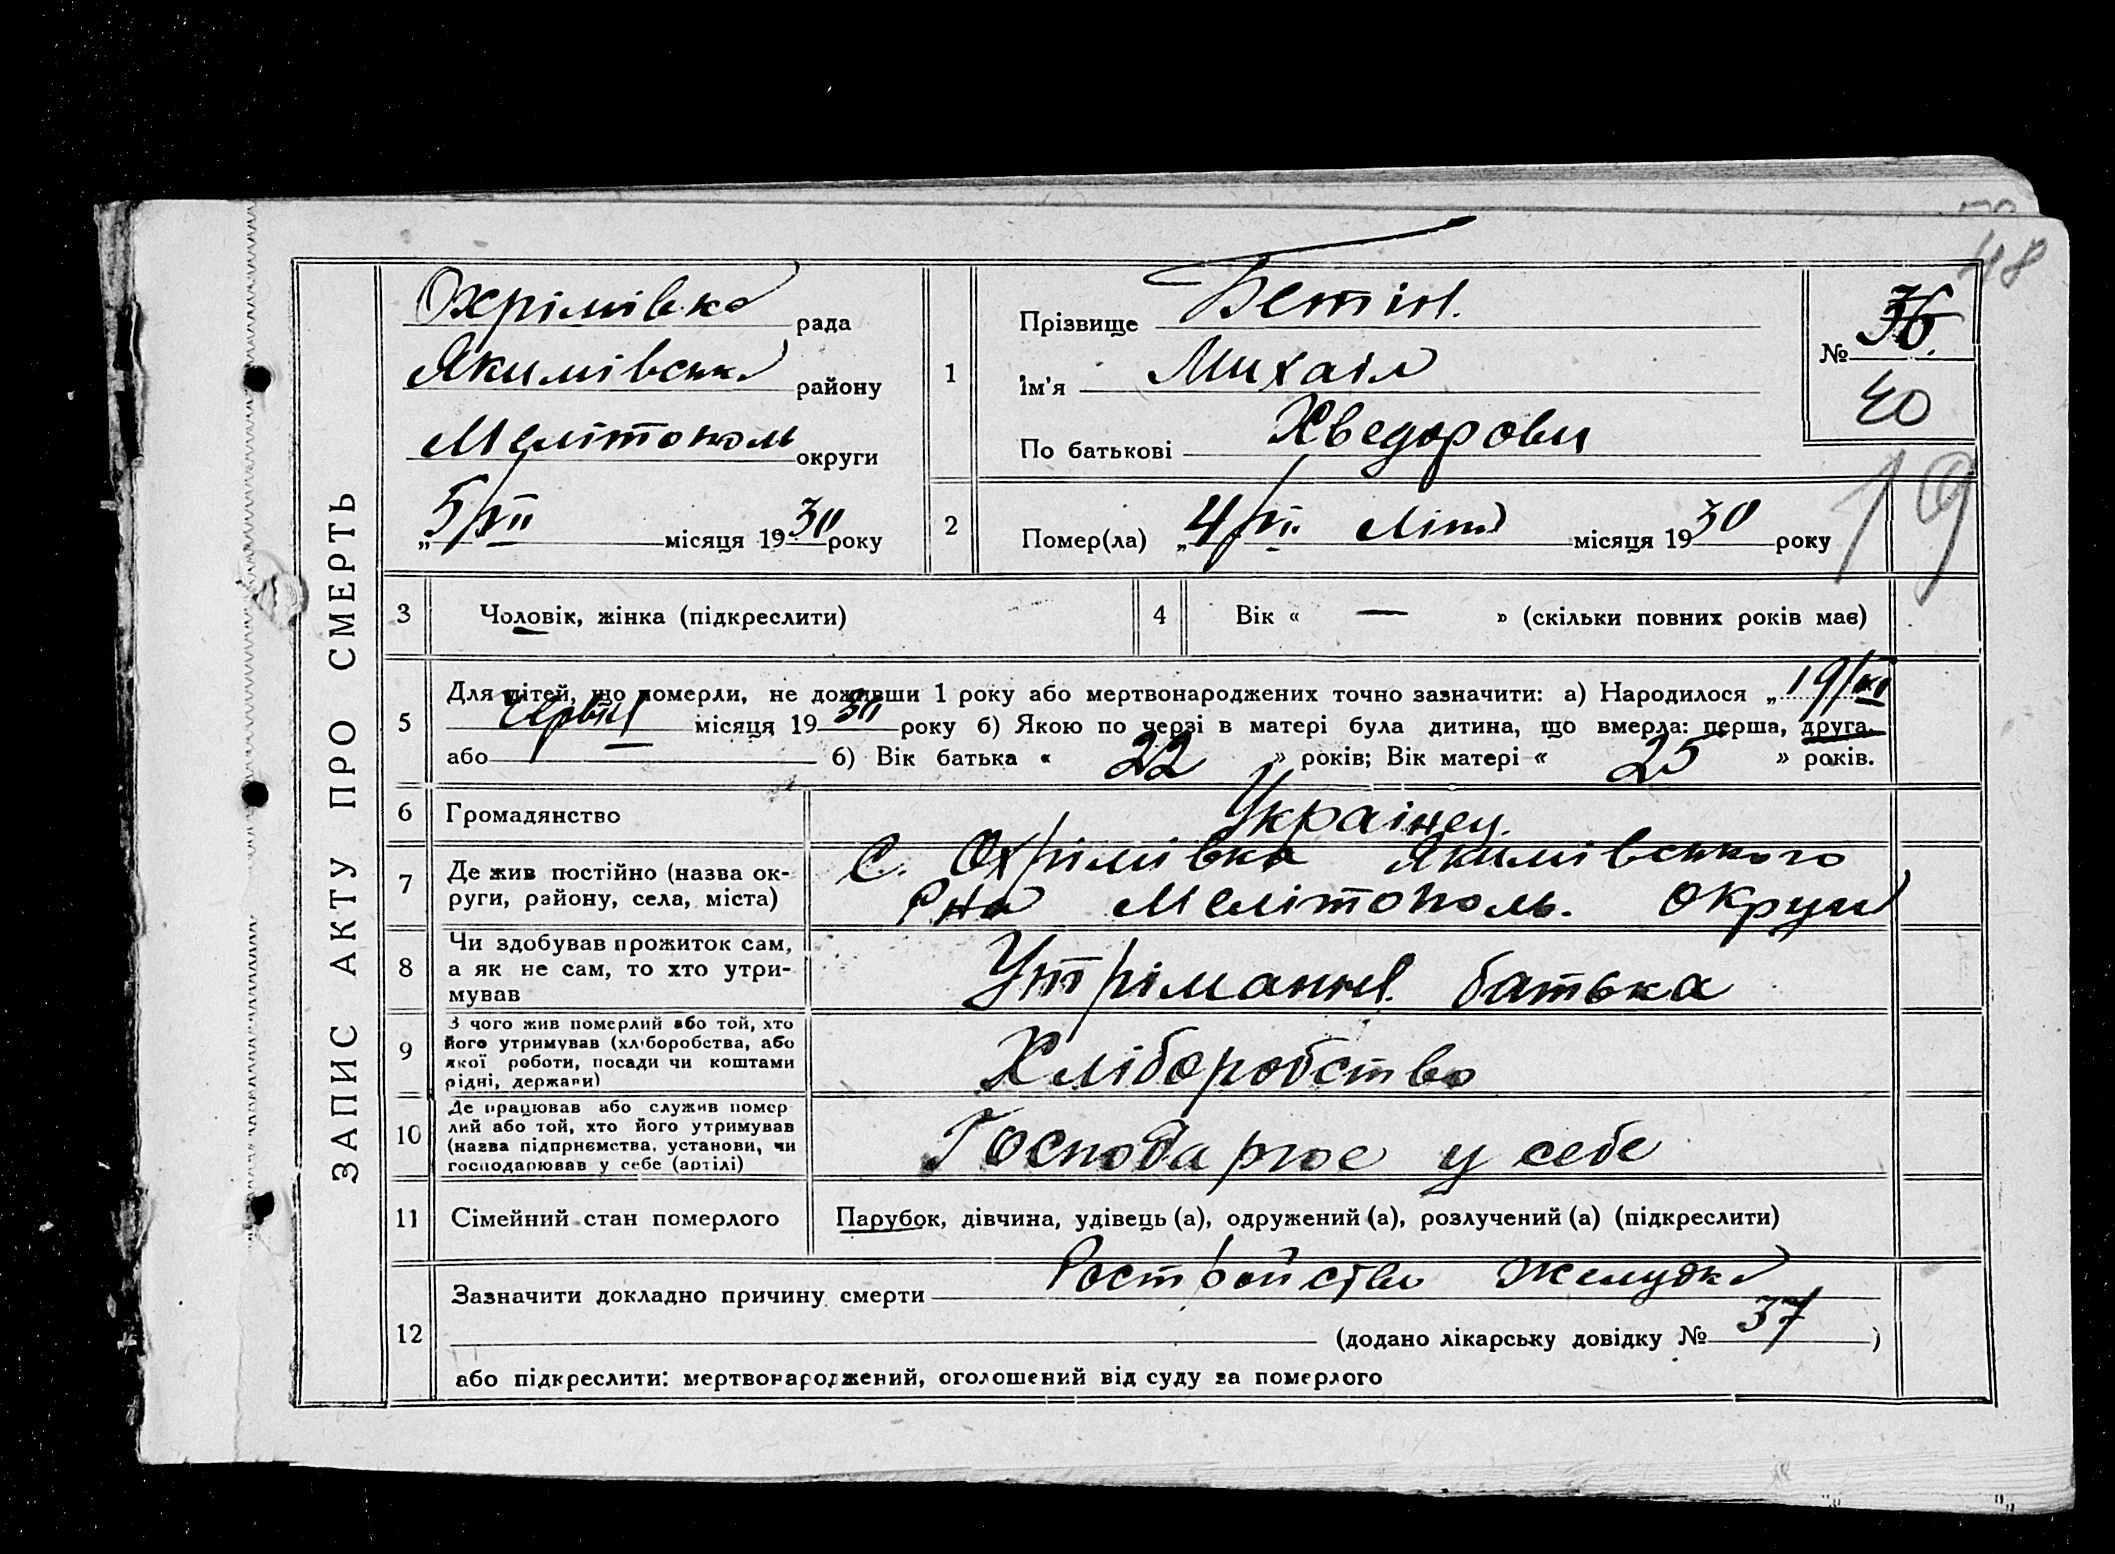 48
ЗАПИС АКТУ ПРО СМЕРТЬ
Охрімівка рада
Якимівськ району
Мелітополь округи
„5/VII місяця 1930 року
1
Прізвище Бетін.
Ім'я Михаіл
По батькові Хведорови
№ 36
40
19
2
Помер(ла) „4/VII Літа місяця 1930 року
3 Чоловік, жінка (підкреслити)
4 Вік « — » (скільки повних років має)
5 Для дітей, що померли, не доживши 1 року або мертвонароджених точно зазначити: а) Народилося „19/VI
Червня місяця 1930 року б) Якою по черзі в матері була дитина, що вмерла: перша, друга
або б) Вік батька « 22 » років; Вік матері « 25 » років.
6 Громадянство Українец.
7 Де жив постійно (назва ок-
руги, району, села, міста)
С. Охрімівка Якимівського
Рна Мелітополь. Округи
8 Чи здобував прожиток сам,
а як не сам, то хто утри-
мував
Утріманнеі батька
9 З чого жив померлий або той, хто
його утримував (хліборобства, або
якої роботи, посади чи коштами
рідні, держави)
Хліборобство
10 Де працював або служив помер
лий або той, хто його утримував
(назва підприємства, установи, чи
господарював у себе (артілі)
Господарює у себе
11 Сімейний стан померлого Парубок, дівчина, удівець (а), одружений (а), розлучений (а) (підкреслити)
12 Зазначити докладно причину смертиРостройство желудка
(додано лікарську довідку № 37 )
або підкреслити: мертвонароджений, оголошений від суду за померлого